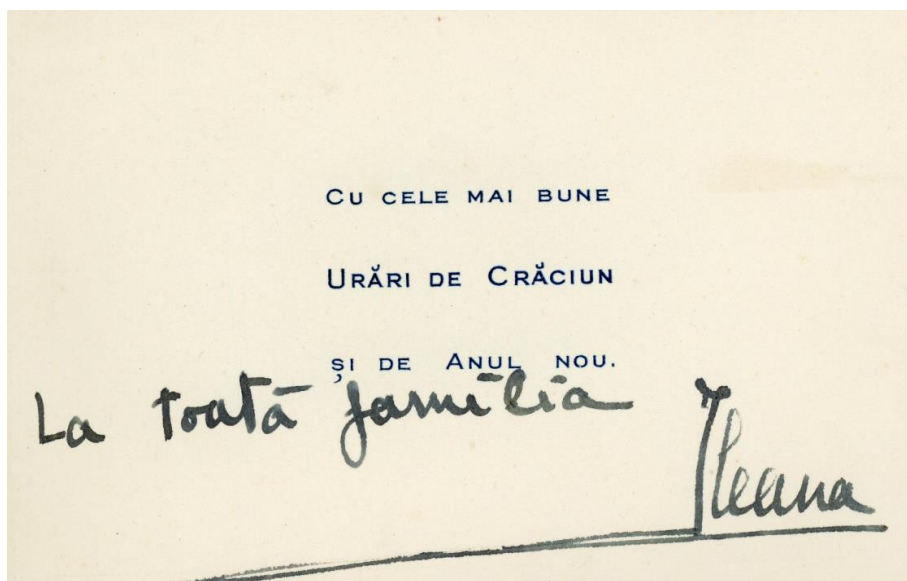 CU CELE MAI BUNE
URĂRI DE CRĂCIUN
ȘI DE ANUL NOU.
La toată familia
Ileana